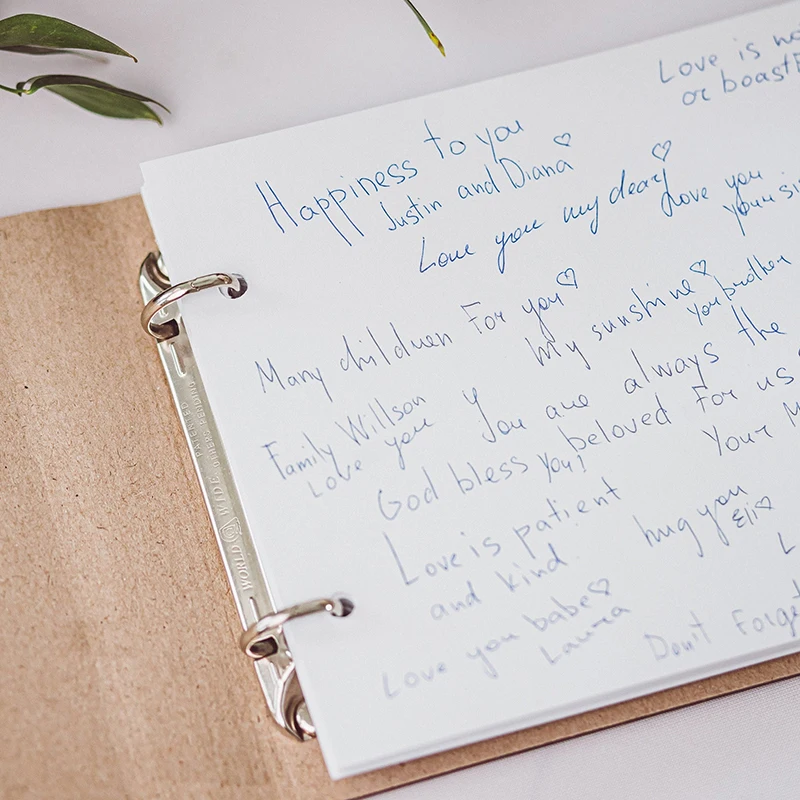 Love is no
or boastf
Happiness to you
Justin and Diana
Love you my dear
Love you
your si
Many children For you
My sunshine
your brother
Family Willson
Love you
You are always the
beloved For us
God bless you!
Your M
Love is patient
and kind
hug you
Eli
L
Love you babe
Laura
Don't Forget
WORLD WIDE
OTHERS PENDING
PATENTED